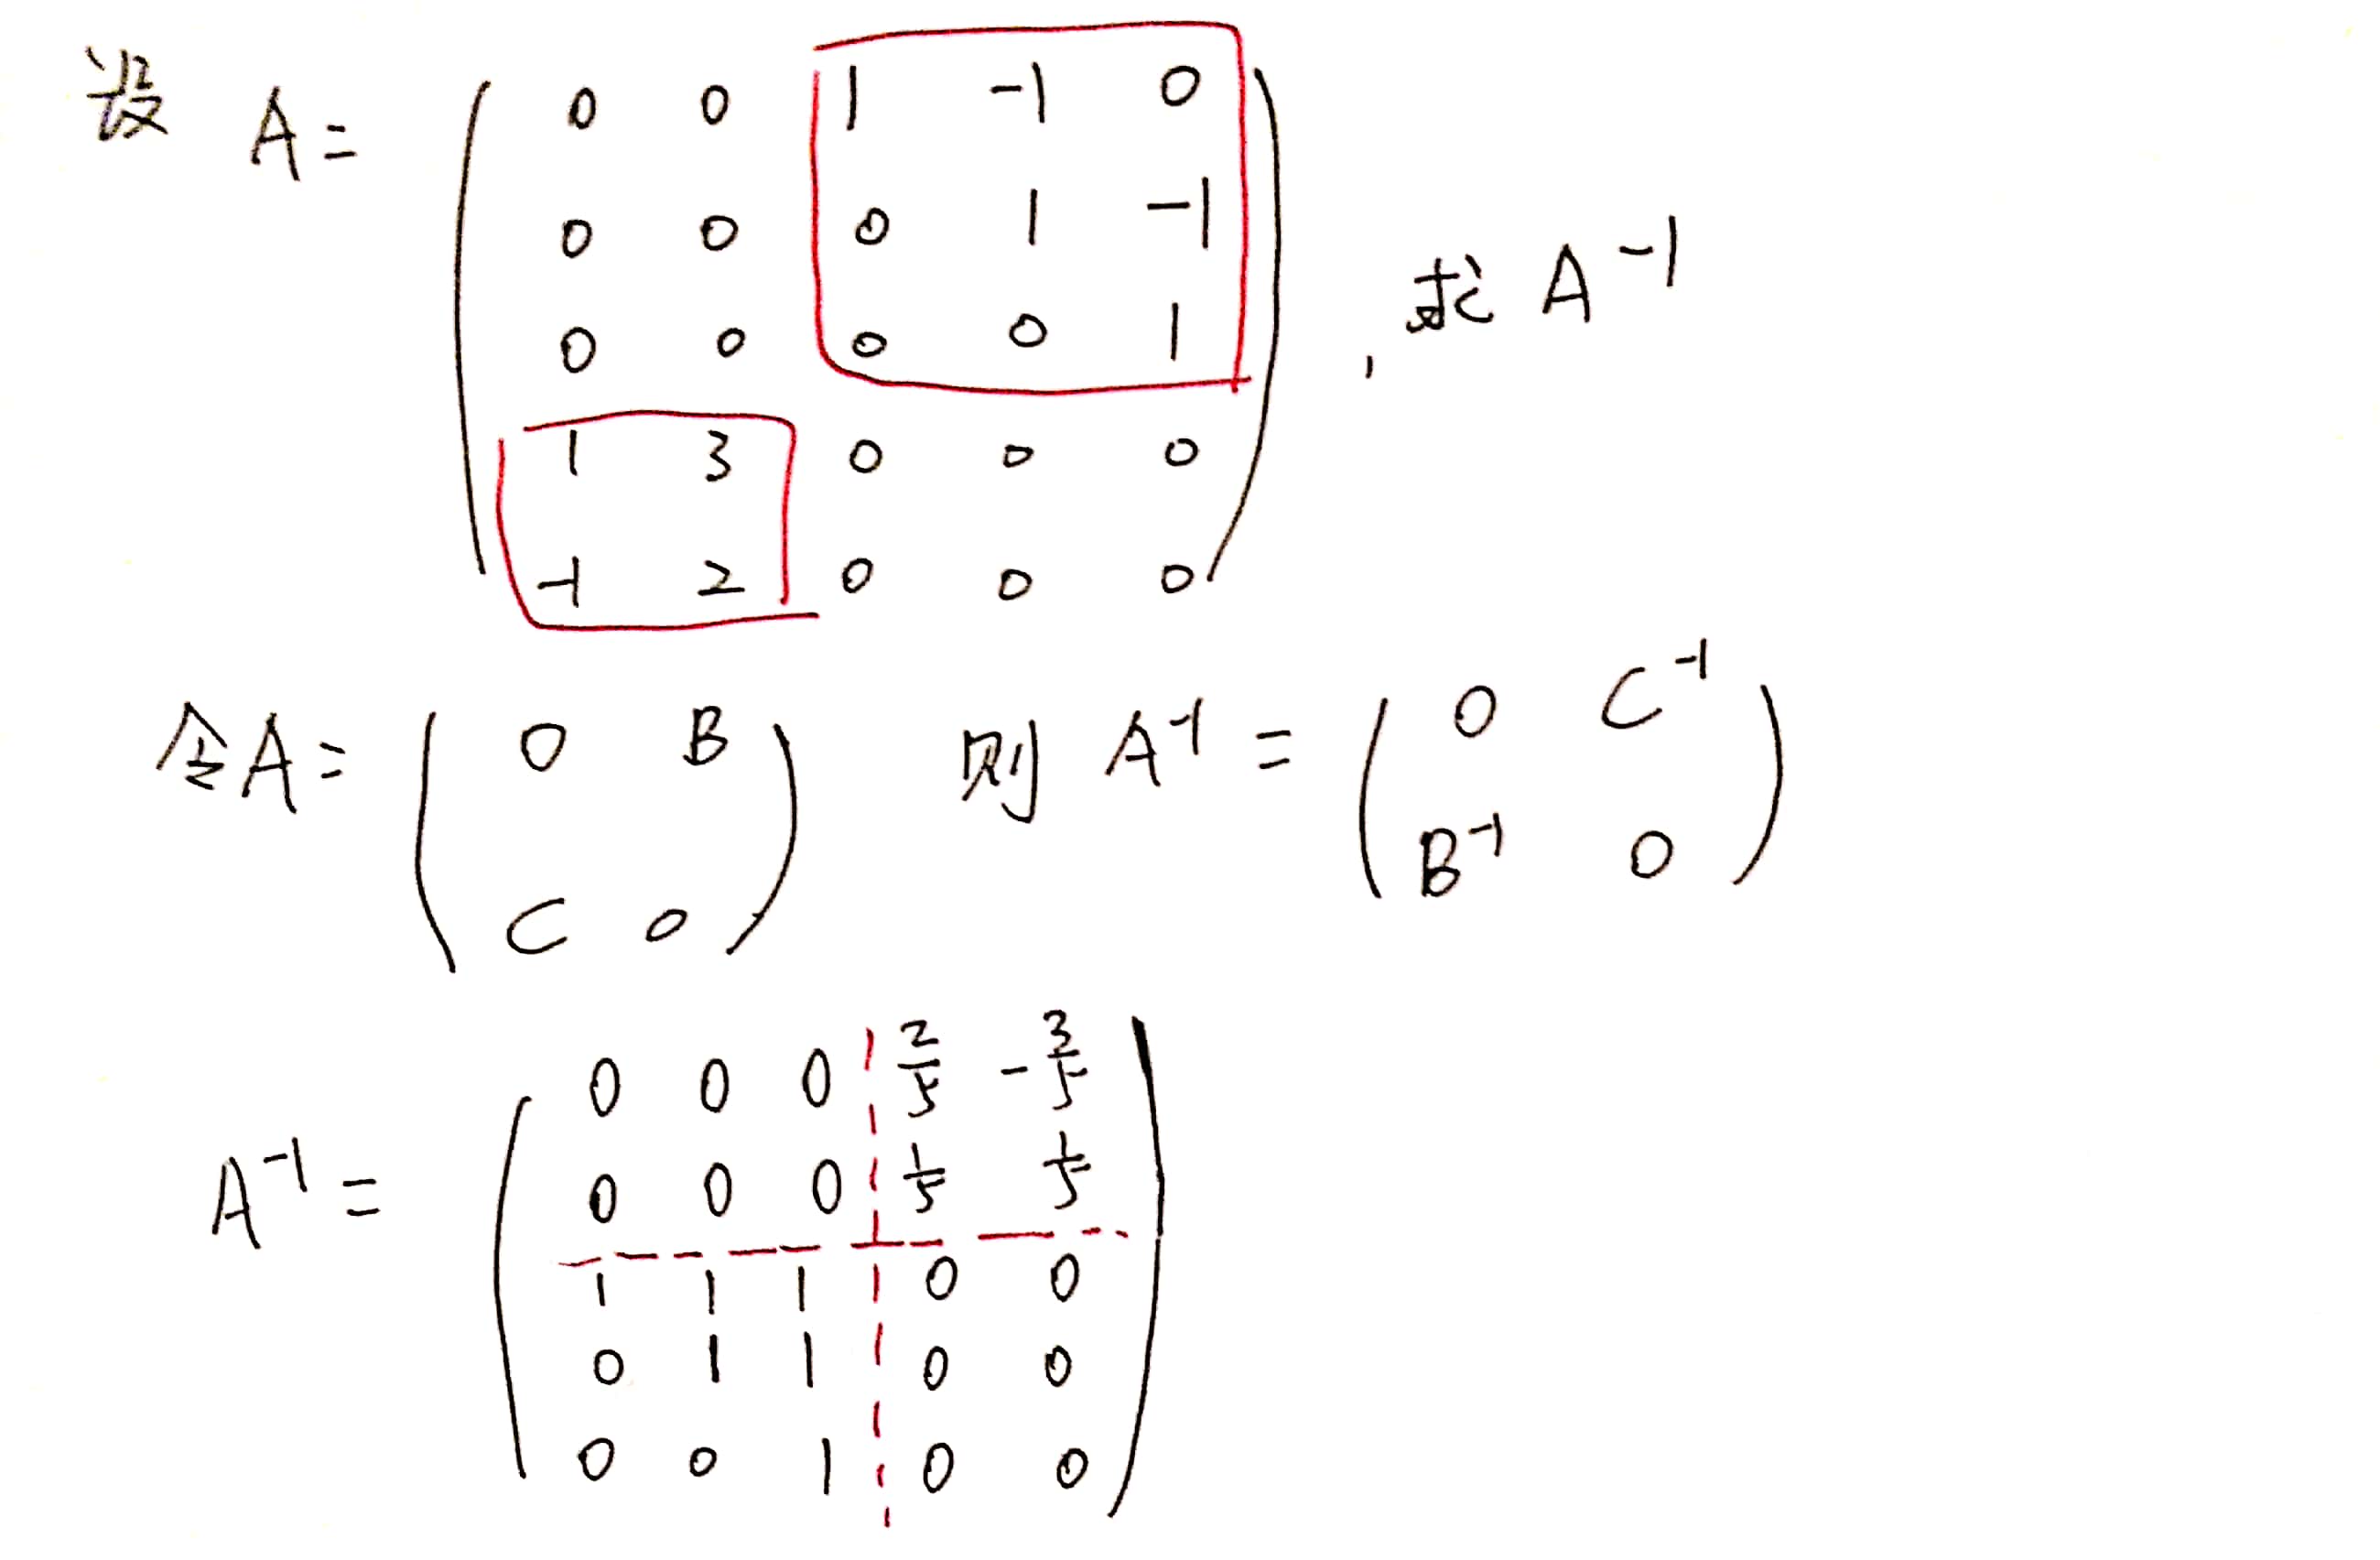 设 A = ( 0 0 1 -1 0
0 0 0 1 -1
0 0 0 0 1 , 求 A⁻¹
1 3 0 0 0
-1 2 0 0 0 )
令A = ( 0 B 则 A⁻¹ = ( 0 C⁻¹
C 0 ) B⁻¹ 0 )
A⁻¹ = ( 0 0 0 2/5 -3/5
0 0 0 1/5 1/5
1 1 1 0 0
0 1 1 0 0
0 0 1 0 0 )